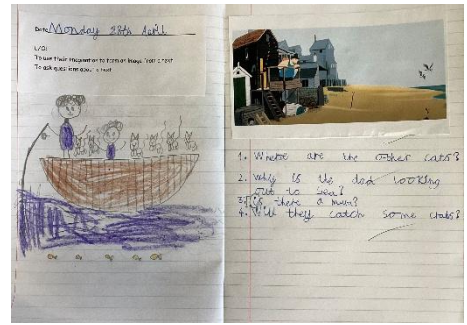 Date Monday 28th April
L/O:
To use their imagination to form an image from a text
To ask questions about a text
1. Where are the other cats?
2. Why is the dad looking
out to sea?
3. is there a mum?
4. Will they catch some crabs?